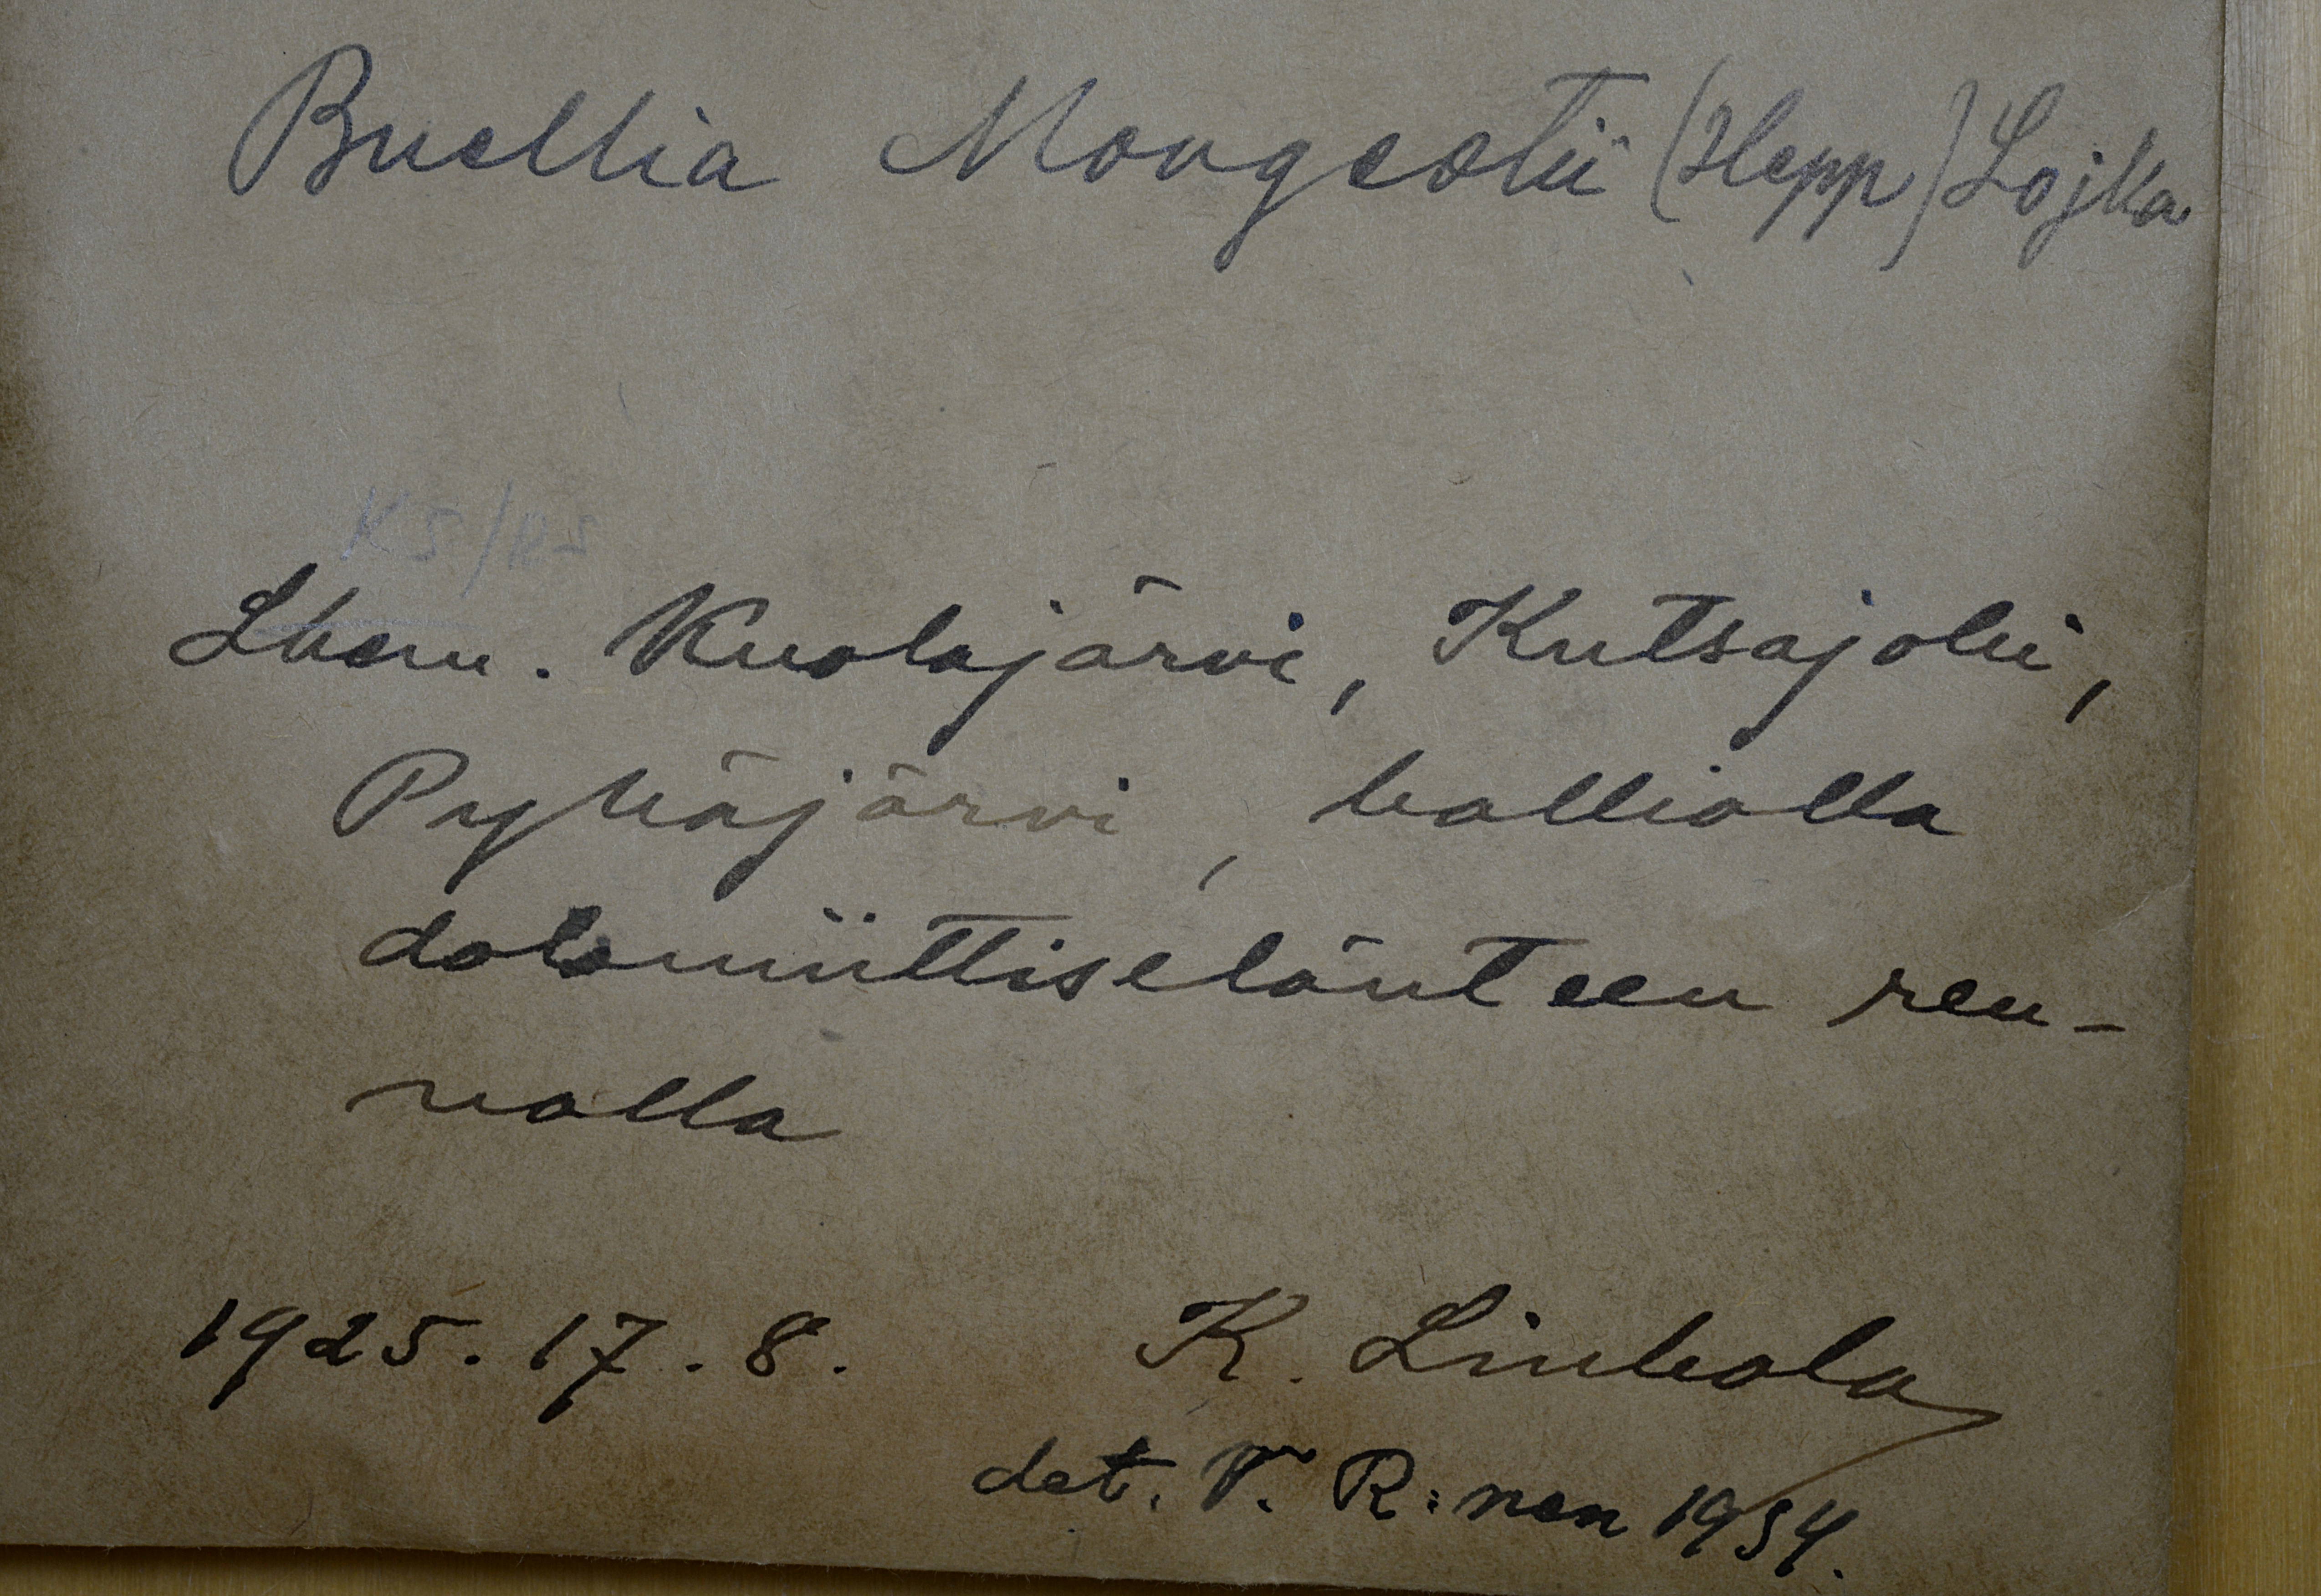 Buellia Mougeotii (Hepp) Lojka
KS/KS
Lkem. Kuolajärvi, Kutsajoki,
Pyhäjärvi, kalliolla
dolomiittiselänteen reu-
nalla
1925. 17. 8. K. Linkola
det. V. R:nen 1934.